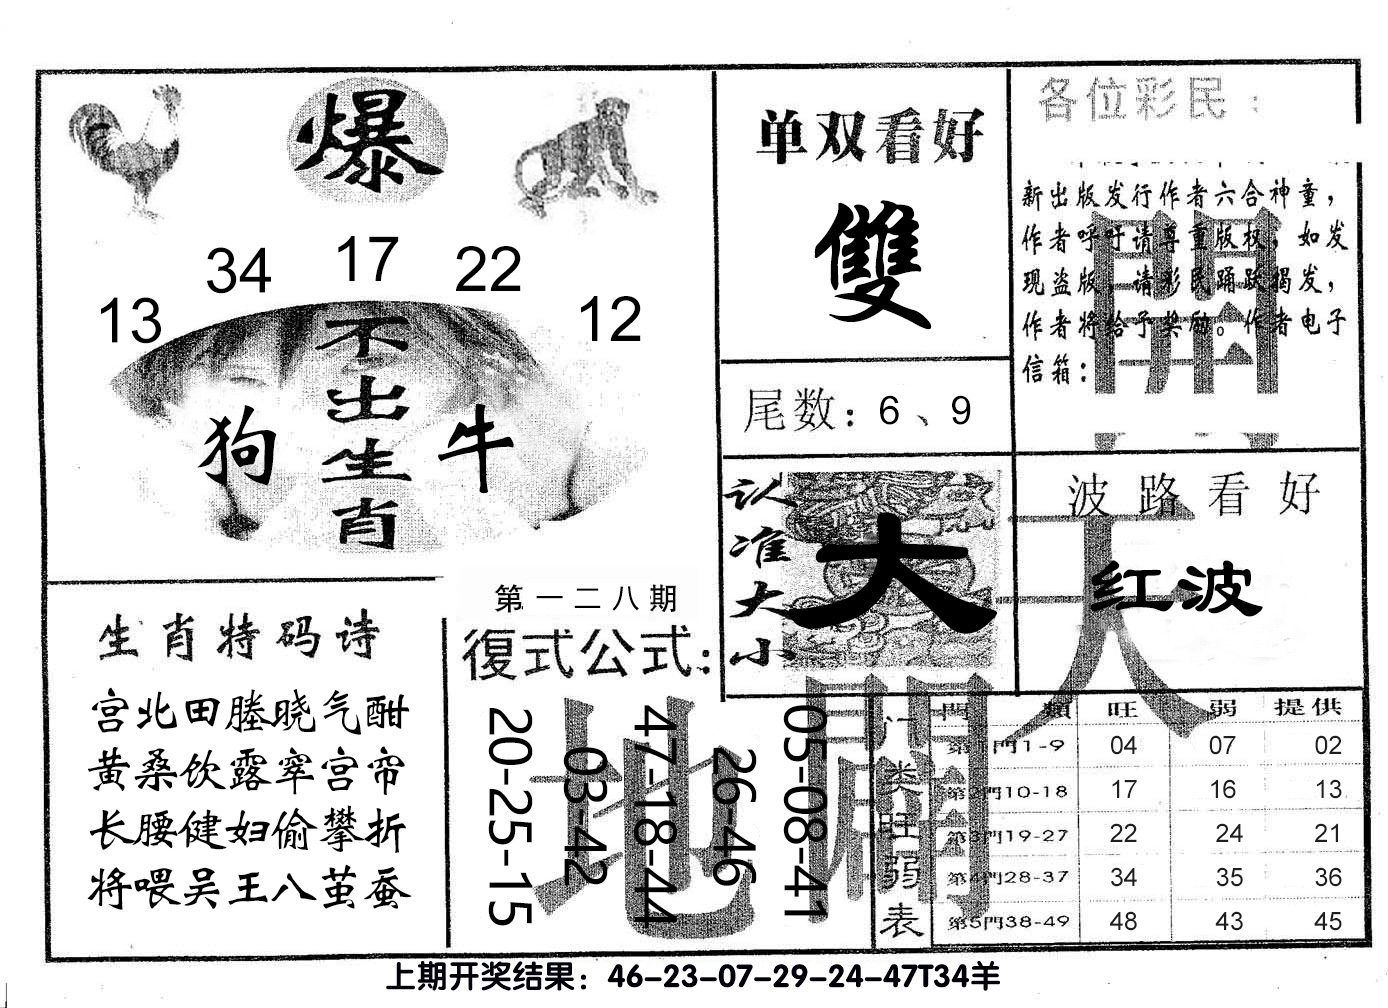 爆
34 17 22
13 12
不出生肖
狗 牛
单双看好
雙
尾数：6、9
各位彩民：
新出版发行作者六合神童，
作者呼吁请尊重版权，如发
现盗版，请彩民踊跃揭发，
作者将给予奖励。作者电子
信箱：
認准大小
大
波路看好
红波
天
地
開
生肖特码诗
宫北田塍晓气酣
黄桑饮露窣宫帘
长腰健妇偷攀折
将喂吴王八茧蚕
第一二八期
復式公式：
20-25-15
03-42
47-18-44
26-46
05-08-41
门类旺弱表
門類 旺 弱 提供
第1門1-9 04 07 02
第2門10-18 17 16 13
第3門19-27 22 24 21
第4門28-37 34 35 36
第5門38-49 48 43 45
上期开奖结果：46-23-07-29-24-47T34羊